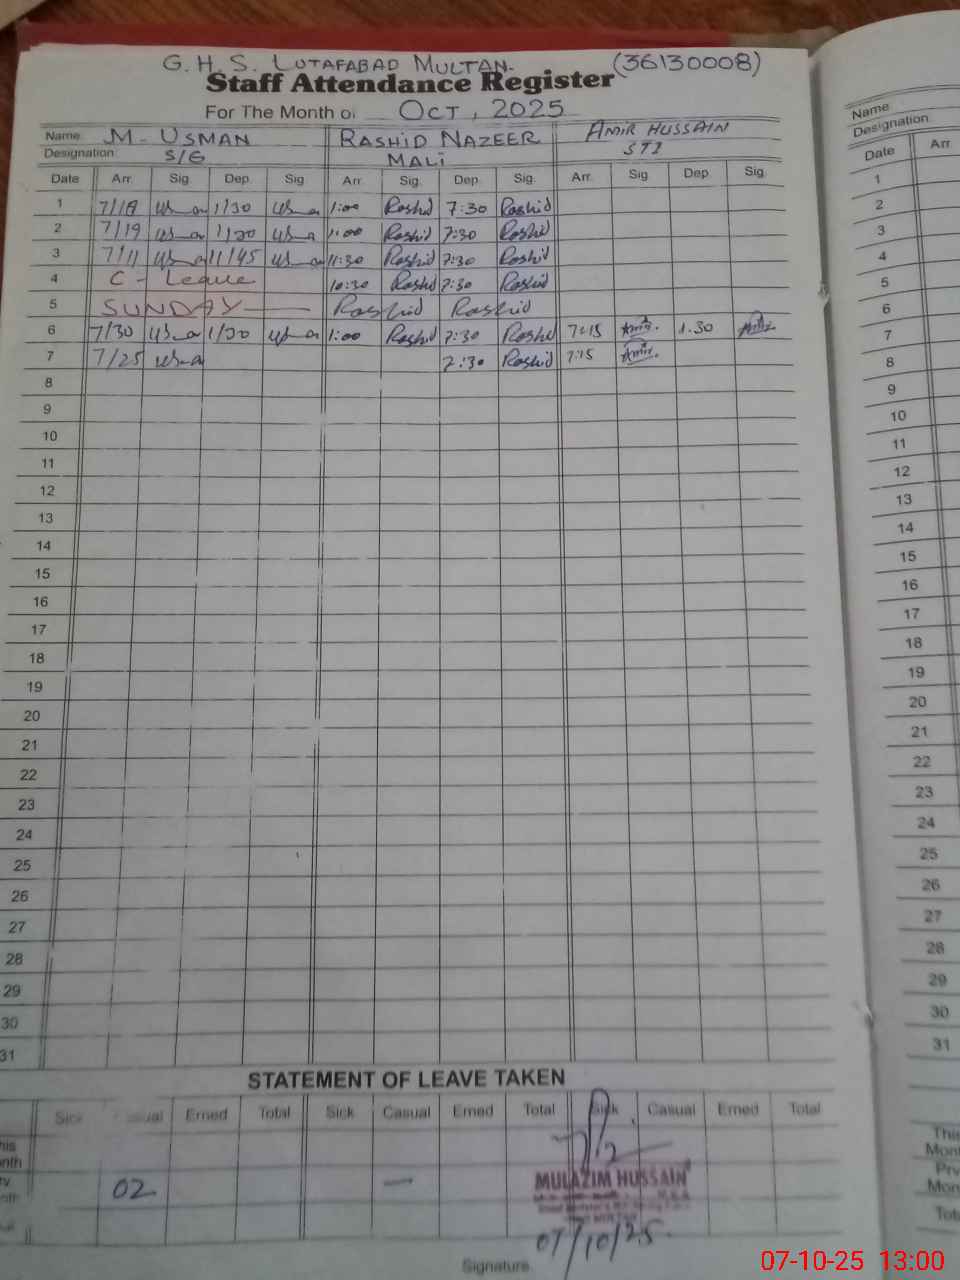 G.H.S. LUTAFABAD MULTAN. (36130008)
Staff Attendance Register
For The Month of OCT, 2025
Name: M-USMAN RASHID NAZEER AMIR HUSSAIN
Designation: S/G MALI STI
Date Arr. Sig. Dep. Sig. Arr. Sig. Dep. Sig. Arr. Sig. Dep. Sig.
1 7/19 1/30 1:00 Rashid 7:30 Rashid
2 7/19 1/20 1:00 Rashid 7:30 Rashid
3 7/11 11/45 11:30 Rashid 7:30 Rashid
4 C-Leave 10:30 Rashid 7:30 Rashid
5 SUNDAY Rashid Rashid
6 7/30 1/20 1:00 Rashid 7:30 Rashid 7:15 Amir 1.30 Amir
7 7/25 7:30 Rashid 7:15 Amir
8
9
10
11
12
13
14
15
16
17
18
19
20
21
22
23
24
25
26
27
28
29
30
31
STATEMENT OF LEAVE TAKEN
Sick Casual Erned Total Sick Casual Erned Total Sick Casual Erned Total
02 —
MULAZIM HUSSAIN
07/10/25.
Signature
Name:
Designation:
Date Arr.
1
2
3
4
5
6
7
8
9
10
11
12
13
14
15
16
17
18
19
20
21
22
23
24
25
26
27
28
29
30
31
This
Mon
Prv
Mon
Tot
07-10-25 13:00